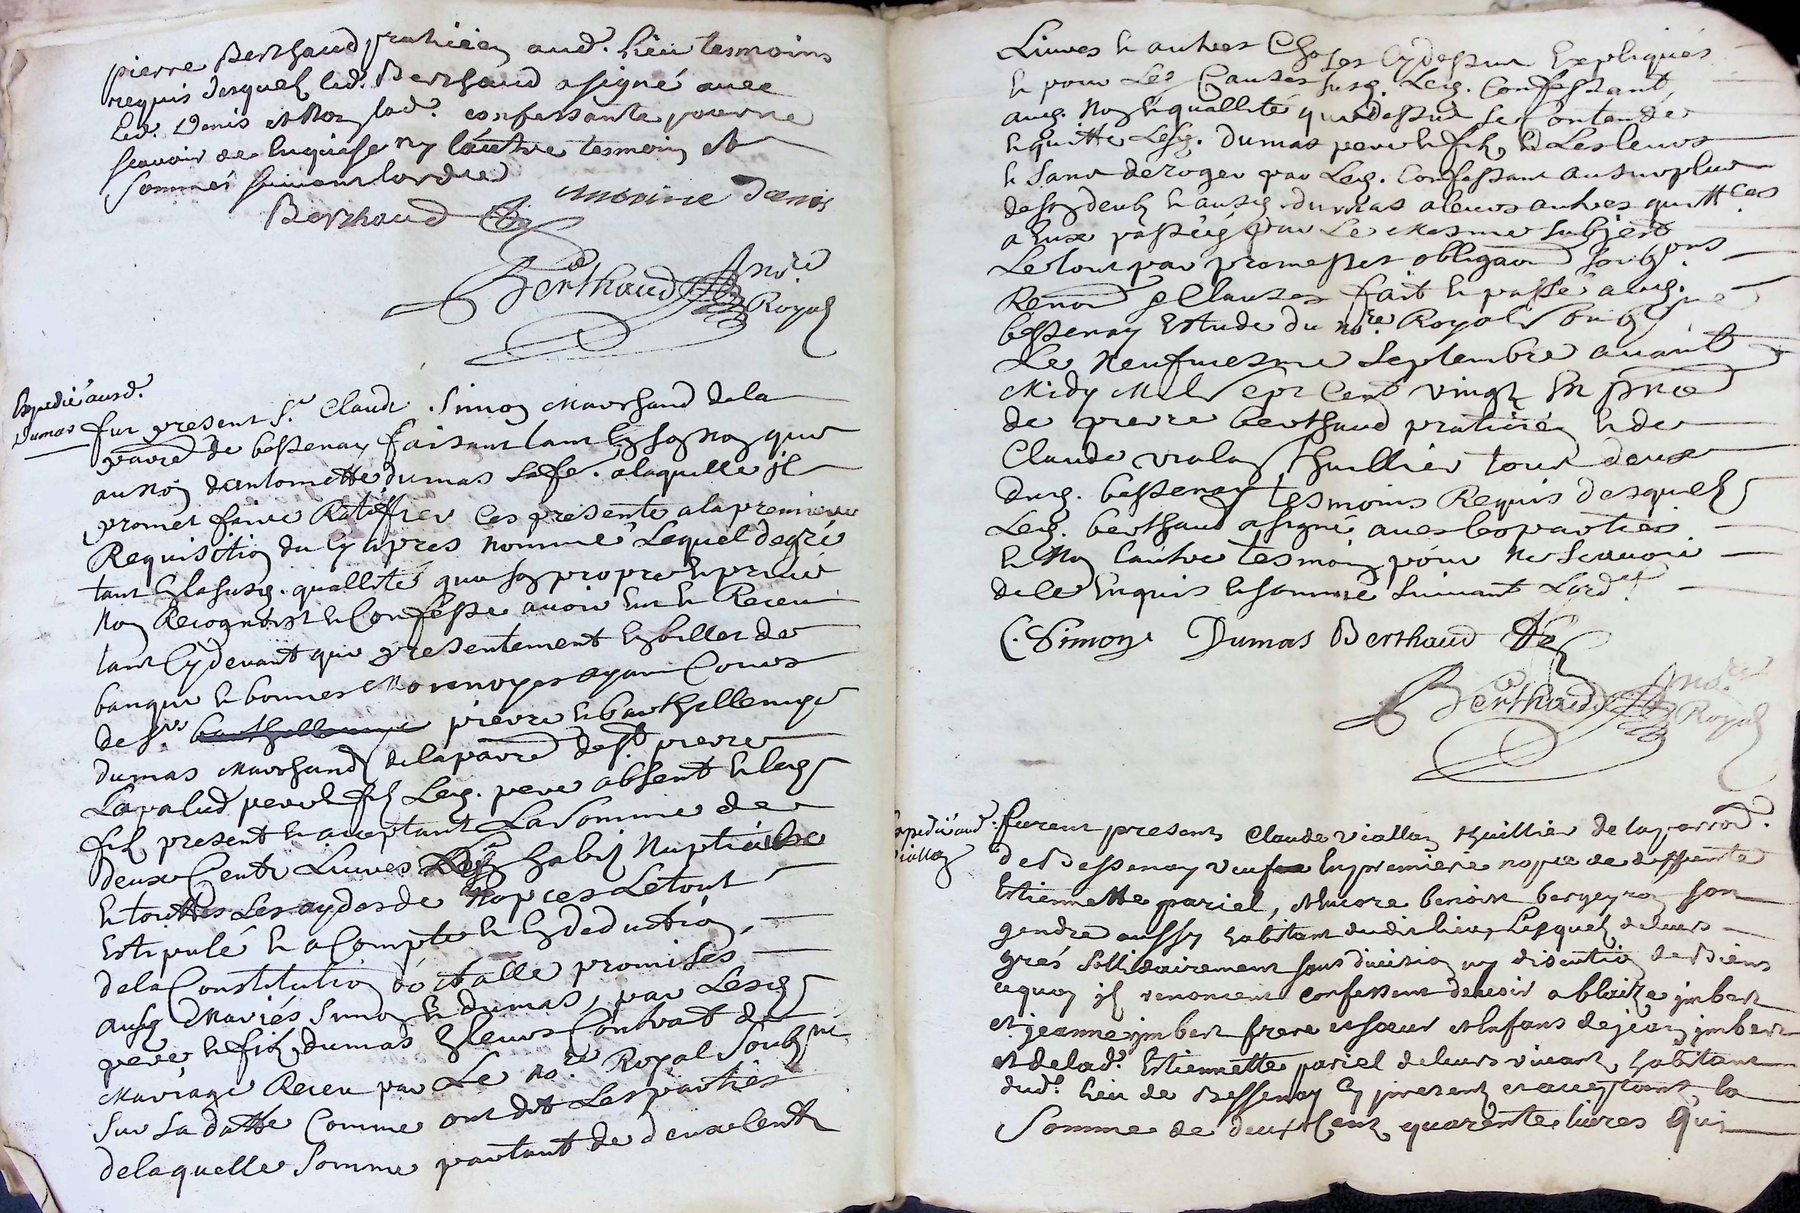 pierre Berthaud praticien aud. lieu tesmoins
requis desquelz led. Berthaud a signé avec
led. Denis et non lad. confessante pour ne
scavoir de enquise ny l'autre tesmoin et
sommés suivant lord.
Antoine Denis
Berthaud
Berthaud no.re
Royal
Expedié ausd.
Dumas
fut present S.r Claude Simon Marchand de la
parre de bessenay faisant tant en son nom que
au nom dantomette dumas sa fe. a laquelle il
promet faire Ratiffier ces presente a la premiere
Requisition du cy apres nommé Lequel de gré
tant en la susd. quallité que son propre et privé
nom Recognoist et Confesse avoir eu et Receu
tant cy devant que presentement en billet de
banque et bonnes Monnoyes ayant Cours
de srs barthellemye pierre et barthellemye
dumas Marchandz de la parre de st pierre
Lapalud pere et filz Led. pere absent et led.
filz present et acceptant La Somme de
deux Centz Livres habitz Nuptiaux
et touttes Les aydes de Nopces Le tout
Estipulé et a Compte et en deduction
de la Constitution dotalle promises
ausd. Mariés Simon et dumas, par Lesd.
pere et filz dumas en leurs Contrat de
Mariage Receu par Le no.re Royal Soubz.né
Sur Sa datte Comme ont dit Les parties
de laquelle Somme partant de deux Centz
Livres et autres Choses Cy dessus Expliqués
et pour Les Causes susd. Led. Confessant
aud. Nom et quallité que dessus se Contente
et quitte Lesd. dumas pere et filz et Les leurs
et Sans deroger par Led. Confessant au surplus
de son deub et ausd. dumas a leurs autres quitt.ces
a Eux passées par Le Mesme Subject
Le tout par promesses obligaon Soub.ons
Renon et Clauses fait et passé aud.
bessenay Estude du no.re Royal soubz.né
Le Neufviesme Septembre avant
Midy Mil Sept Cent vingt En pnce
de pierre berthaud praticien et de
Claude vialon thuillier tous deux
dud. bessenay tesmoins Requis desquelz
Led. berthaud a signé avec les parties
et Non l'autre tesmoin pour Ne Scavoir
de ce Enquis et sommé Suivant Lord.
C. Simon Dumas Berthaud
Berthaud no.re
Royal
Expedié aud.
viallon
furent presents Claude viallon thuillier de la parroe.
de Bessenay veuf en premiere nopce de deffuncte
Estiennette pariel, et encore benoist bergeron son
gendre aussy habitant dudit lieu, Lesquelz de leurs
grés sollidairement sans division ny discution de Biens
a quoy ilz renoncent confessent devoir a blaize jmbert
et jeanne jmbert frere et soeur et enfans de jean jmbert
et de lad. Estiennette pariel de leurs vivant, habitant
dud. lieu de Bessenay cy present et acceptant la
Somme de deux Cent quarente livres qui